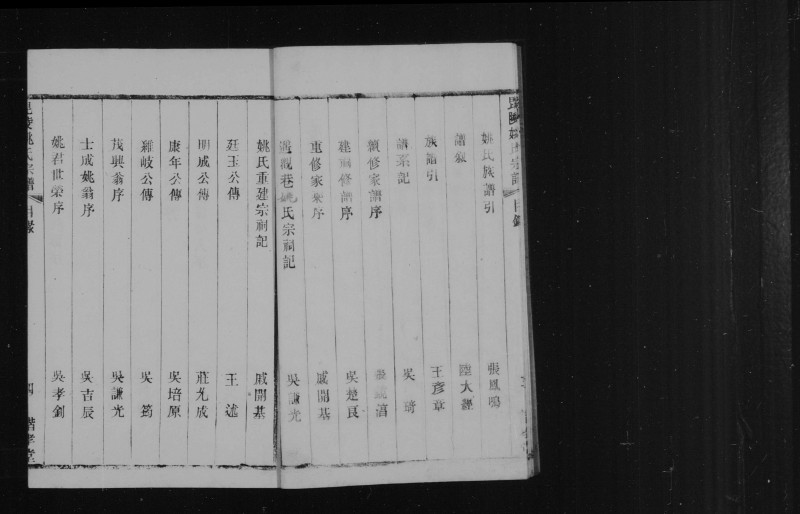 毘陵姚氏宗譜 目錄
姚氏族譜引 張鳳鳴
譜叙 陸大經
族譜引 王彥章
譜系記 吳琦
續修家譜序
建廟修譜序 吳楚良
重修家乘序 戚開基
巷姚氏宗祠記 吳謙光
姚氏重建宗祠記 戚開基
廷玉公傳 王述
明成公傳 莊允成
康年公傳 吳培原
公傳 吳筠
茂興翁序 吳謙光
士成姚翁序 吳吉辰
姚君世榮序 吳孝釗
毘陵姚氏宗譜 目錄 四